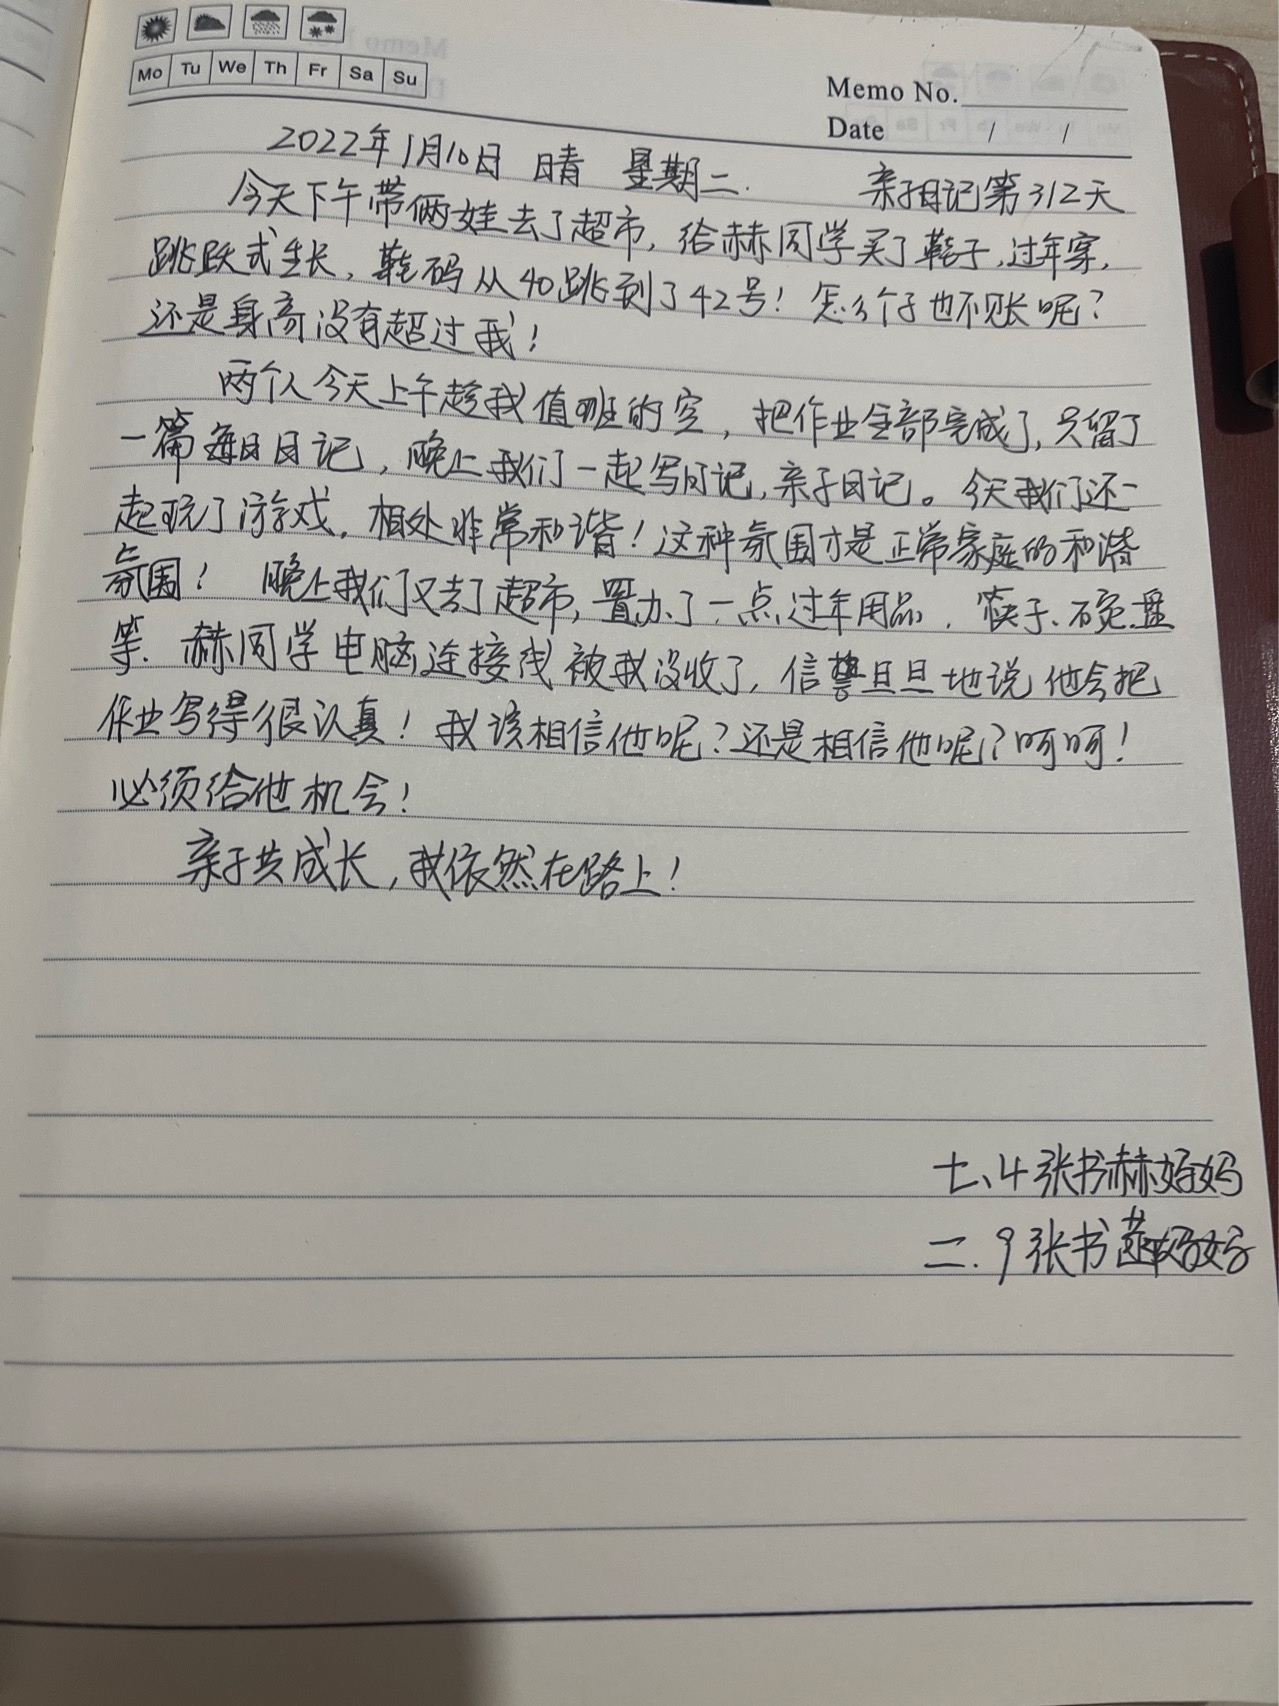 Mo Tu We Th Fr Sa Su
Memo No.
Date / /
2022年1月10日 晴 星期二. 亲子日记第312天
今天下午带俩娃去了超市,给赫同学买了鞋子,过年穿,
跳跃式生长,鞋码从40跳到了42号!怎么个子也不见长呢?
还是身高没有超过我!
两个人今天上午趁我值班的空,把作业全部完成了,只留了
一篇每日日记,晚上我们一起写日记,亲子日记。今天我们还一
起玩了游戏,相处非常和谐!这种氛围才是正常家庭的和谐
氛围! 晚上我们又去了超市,置办了一点过年用品,筷子、碗、盘
等.赫同学电脑连接线被我没收了,信誓旦旦地说他会把
作业写得很认真!我该相信他呢?还是相信他呢?呵呵!
必须给他机会!
亲子共成长,我依然在路上!
七、4张书赫妈妈
二.9张书妈妈